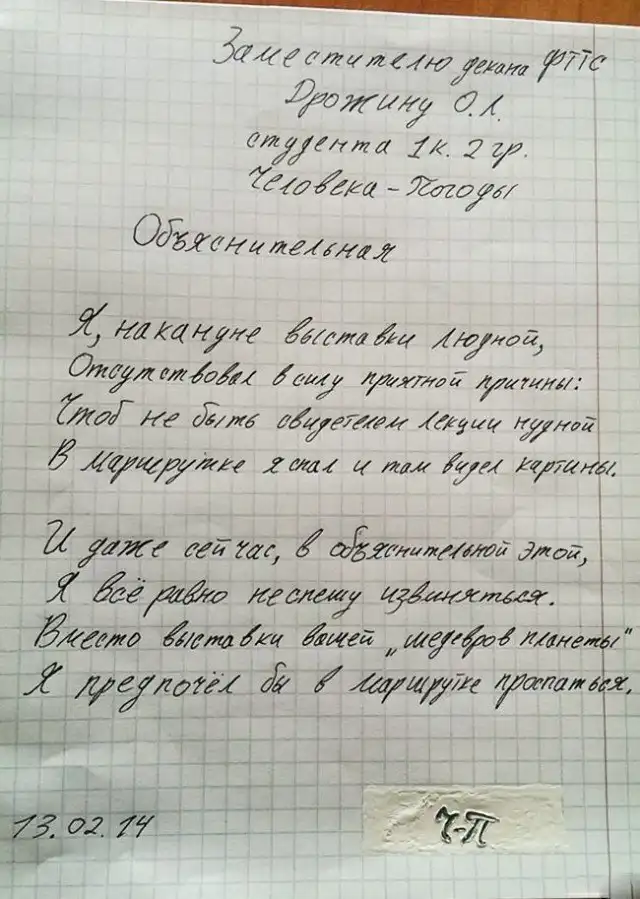 Заместителю декана ФТПС
Дрожину О.Л.
студента 1к. 2 гр.
Человека-Погоды
Объяснительная
Я, накануне выставки людной,
Отсутствовал в силу приятной причины:
Чтоб не быть свидетелем лекции нудной
В маршрутке я спал и там видел картины.
И даже сейчас, в объяснительной этой,
Я всё равно не спешу извиняться.
Вместо выставки вашей „шедевров планеты“
Я предпочёл бы в маршрутке проспаться.
13.02.14
Ч-П